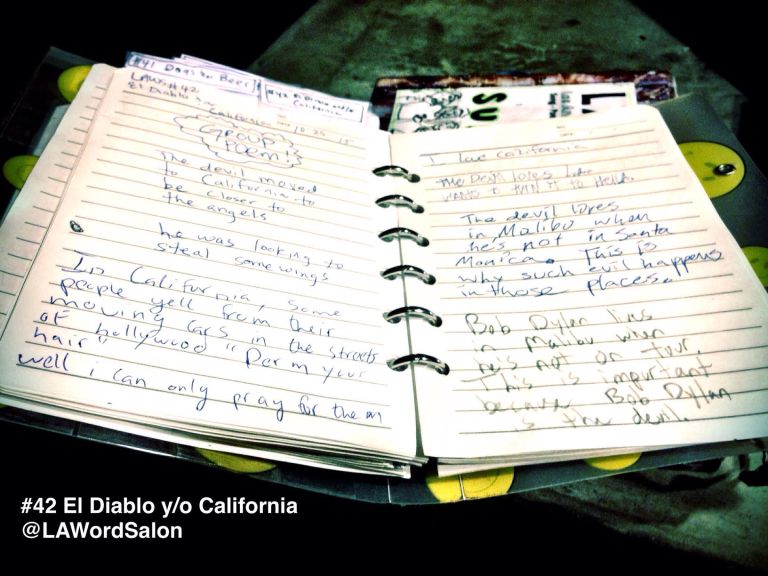 #41 Dogs or Beer
#42 El Diablo y/o
California
LAWS #42
El Diablo y/o
California, 10 25 15
Group
Poem!
The devil moved
to California to
be closer to
the angels
he was looking to
steal some wings
In California, some
people yell from their
moving cars in the streets
of hollywood "Perm your
hair"
well i can only pray for them
I love California
The Devil loves
WANTS to turn it to Hella.
The devil loves
in Malibu when
he's not in Santa
Monica. This is
why such evil happens
in those places.
Bob Dylan lives
in Malibu when
he's not on tour.
This is important
because Bob Dylan
is the devil.
#42 El Diablo y/o California
@LAWordSalon